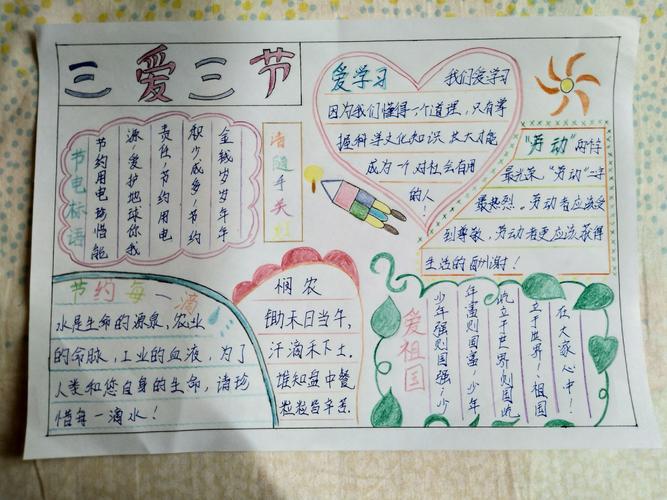 三爱三节
节电标语
节约用电珍惜能
源,爱护地球你我
责任!节约用电
积少成多!节约
金钱岁岁年年
请随手关灯
爱学习
我们爱学习
因为我们懂得一个道理,只有掌
握科学文化知识 长大才能
成为一个对社会有用
的人!
"劳动"两字
最光荣"劳动"二字
最热烈。劳动者应该受
到尊敬,劳动者更应该获得
生活的酬谢!
节约每一滴
水是生命的源泉,农业
的命脉,工业的血液,为了
人类和您自身的生命,请珍
惜每一滴水!
悯农
锄禾日当午,
汗滴禾下土.
谁知盘中餐
粒粒皆辛苦.
爱祖国
少年强则国强!少
年富则国富 少年
屹立于世界则国屹
立于世界!祖国
在大家心中!